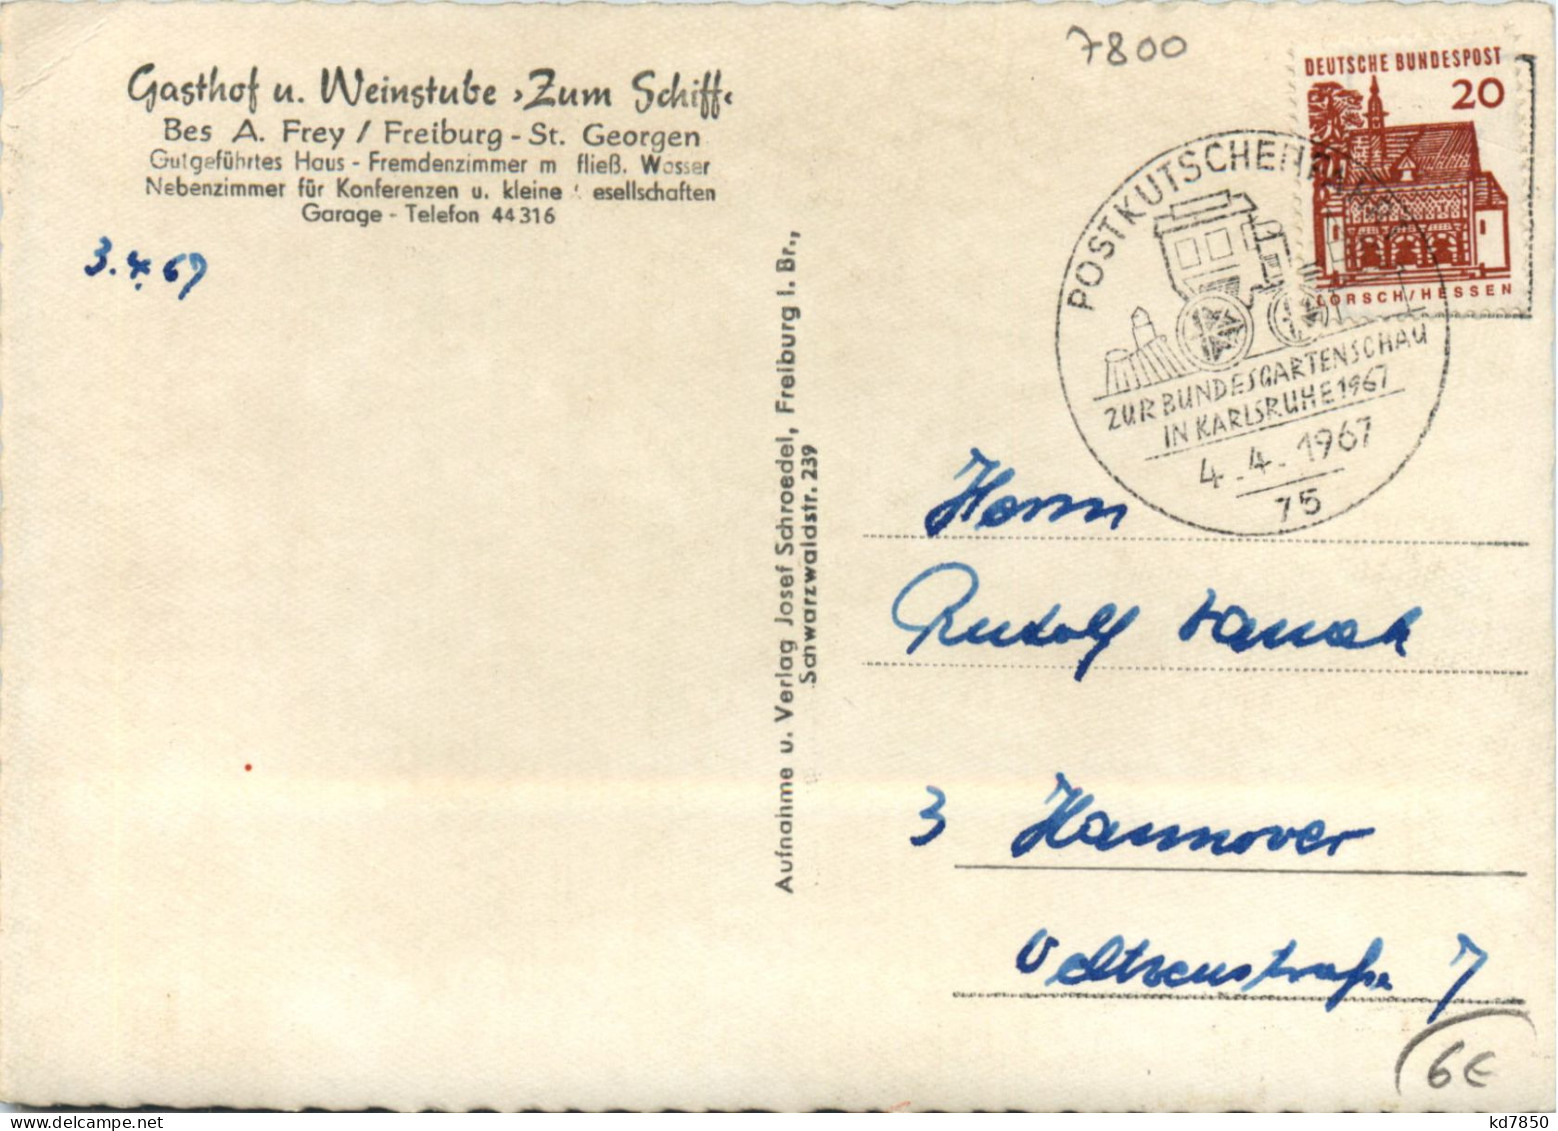 7800
Gasthof u. Weinstube ›Zum Schiff‹
Bes A. Frey / Freiburg - St. Georgen
Gutgeführtes Haus - Fremdenzimmer m fließ. Wasser
Nebenzimmer für Konferenzen u. kleine esellschaften
Garage - Telefon 44316
3.4.67
Aufnahme u. Verlag Josef Schroedel, Freiburg i. Br.,
Schwarzwaldstr. 239
DEUTSCHE BUNDESPOST
20
LORSCH/HESSEN
POSTKUTSCHENFAHRT
ZUR BUNDESGARTENSCHAU
IN KARLSRUHE 1967
4.-4.-1967
75
Herrn
Rudolf
3 Hannover
Veltzenstraße 7
6€
kd7850